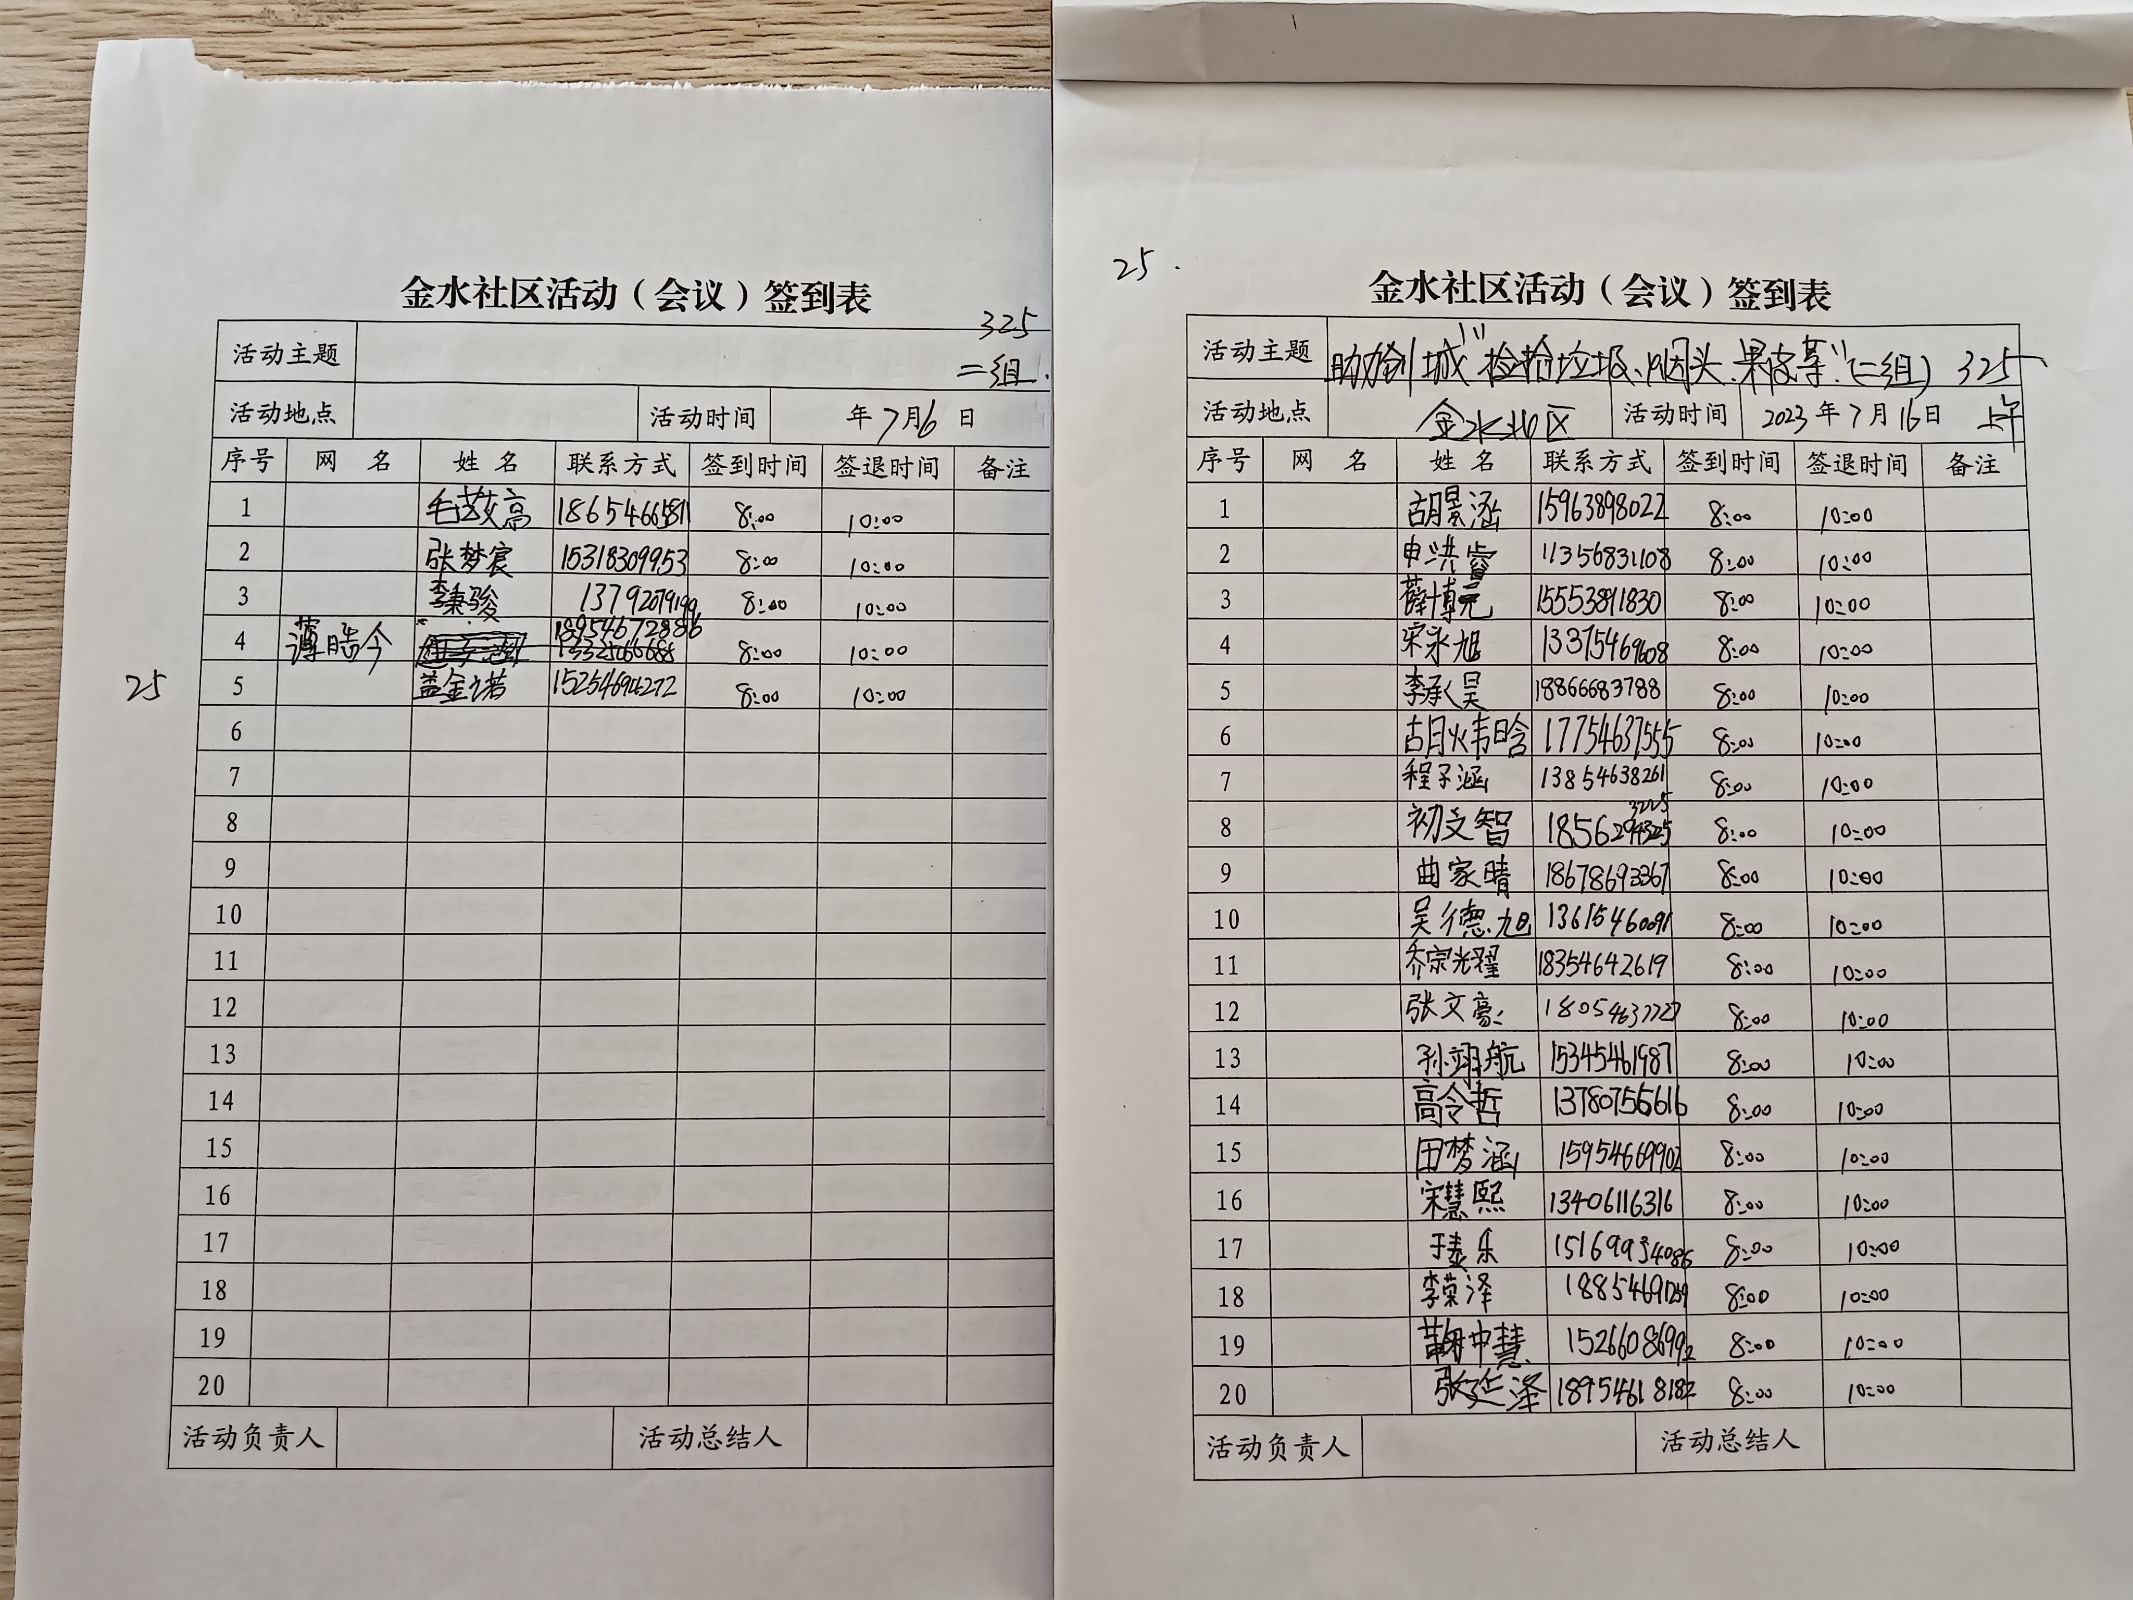 金水社区活动（会议）签到表
325
活动主题 二组.
活动地点 活动时间 年7月6日
序号 网名 姓名 联系方式 签到时间 签退时间 备注
1 18654665811 8:00 10:00
2 张梦宸 15318309953 8:00 10:00
3 李秉骏 13792079199 8:00 10:00
18954672886
4 8:00 10:00
25
5 盖金诺 15254694272 8:00 10:00
6
7
8
9
10
11
12
13
14
15
16
17
18
19
20
活动负责人 活动总结人
25.
金水社区活动（会议）签到表
活动主题 助力创城"捡拾垃圾、烟头、果皮等"（二组） 325
活动地点 金水社区 活动时间 2023年7月16日 上午
序号 网名 姓名 联系方式 签到时间 签退时间 备注
1 胡景涵 15963898022 8:00 10:00
2 申洪睿 11356831108 8:00 10:00
3 薛博元 15553891830 8:00 10:00
4 宋永旭 13375469608 8:00 10:00
5 李承昊 18866683788 8:00 10:00
6 胡炜晗 17754637555 8:00 10:00
7 程子涵 13854638261 8:00 10:00
3225
8 初文智 8:00 10:00
9 曲家晴 18678693367 8:00 10:00
10 吴德旭 13615460091 8:00 10:00
11 乔宗光耀 18354642619 8:00 10:00
12 张文豪 18054637727 8:00 10:00
13 孙翊航 15345461987 8:00 10:00
14 高令哲 13780755616 8:00 10:00
15 田梦涵 15954669902 8:00 10:00
16 宋慧熙 13406116316 8:00 10:00
17 于麦乐 15169934086 8:00 10:00
18 李荣泽 8:00 10:00
19 鞠中慧 15266086992 8:00 10:00
20 张延泽 18954618182 8:00 10:00
活动负责人 活动总结人